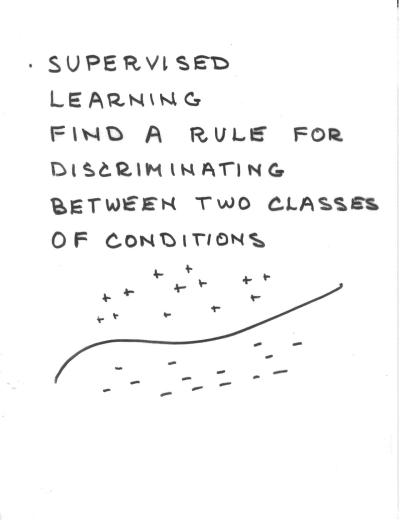 · SUPERVISED
LEARNING
FIND A RULE FOR
DISCRIMINATING
BETWEEN TWO CLASSES
OF CONDITIONS